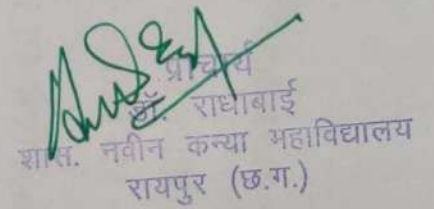 प्राचार्य
डॉ. राधाबाई
शास. नवीन कन्या महाविद्यालय
रायपुर (छ.ग.)